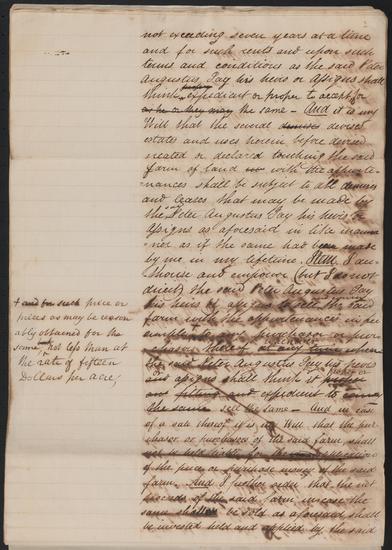 not exceeding seven years at a time
and for such rents and upon such
terms and conditions as the said Peter
Augustus Jay his heirs or assigns shall
think expedient or proper to accept for
as he or they may the same – And it is my
Will that the several devised
estates and uses herein before devised
created or declared touching the said
farm of land with the appurte-
nances shall be subject to all demises
and leases that may be made by
the Peter Augustus Jay his heirs or
assigns as aforesaid in like manner
as if the same had been made
by me in my lifetime. Item I au-
thorise and empower (but I do not
direct) the said Peter Augustus Jay
his heirs or assigns to sell the said
farm with the appurtenances in fee
simple to any purchaser or pur-
chasers
the said Peter Augustus Jay his heirs
or assigns shall think it
and expedient to
the same sell the same – And in case
of a sale thereof it is my Will that the pur-
chaser or purchasers of the said farm, shall
not be
of the price or purchase money of the said
farm. And I further will that the net
proceeds of the said farm in case the
same be sold as aforesaid shall
be invested held and applied by the said
+ and for such price or
prices as may be reason
ably obtained for the
same, not less than at
the rate of fifteen
Dollars per acre,